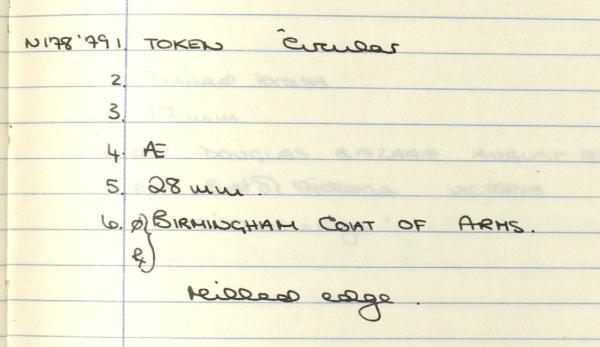 N178'79 1. TOKEN Circular
2.
3.
4. Æ
5. 28 mm.
6. Ø } BIRMINGHAM COAT OF ARMS.
R }
Milled edge.